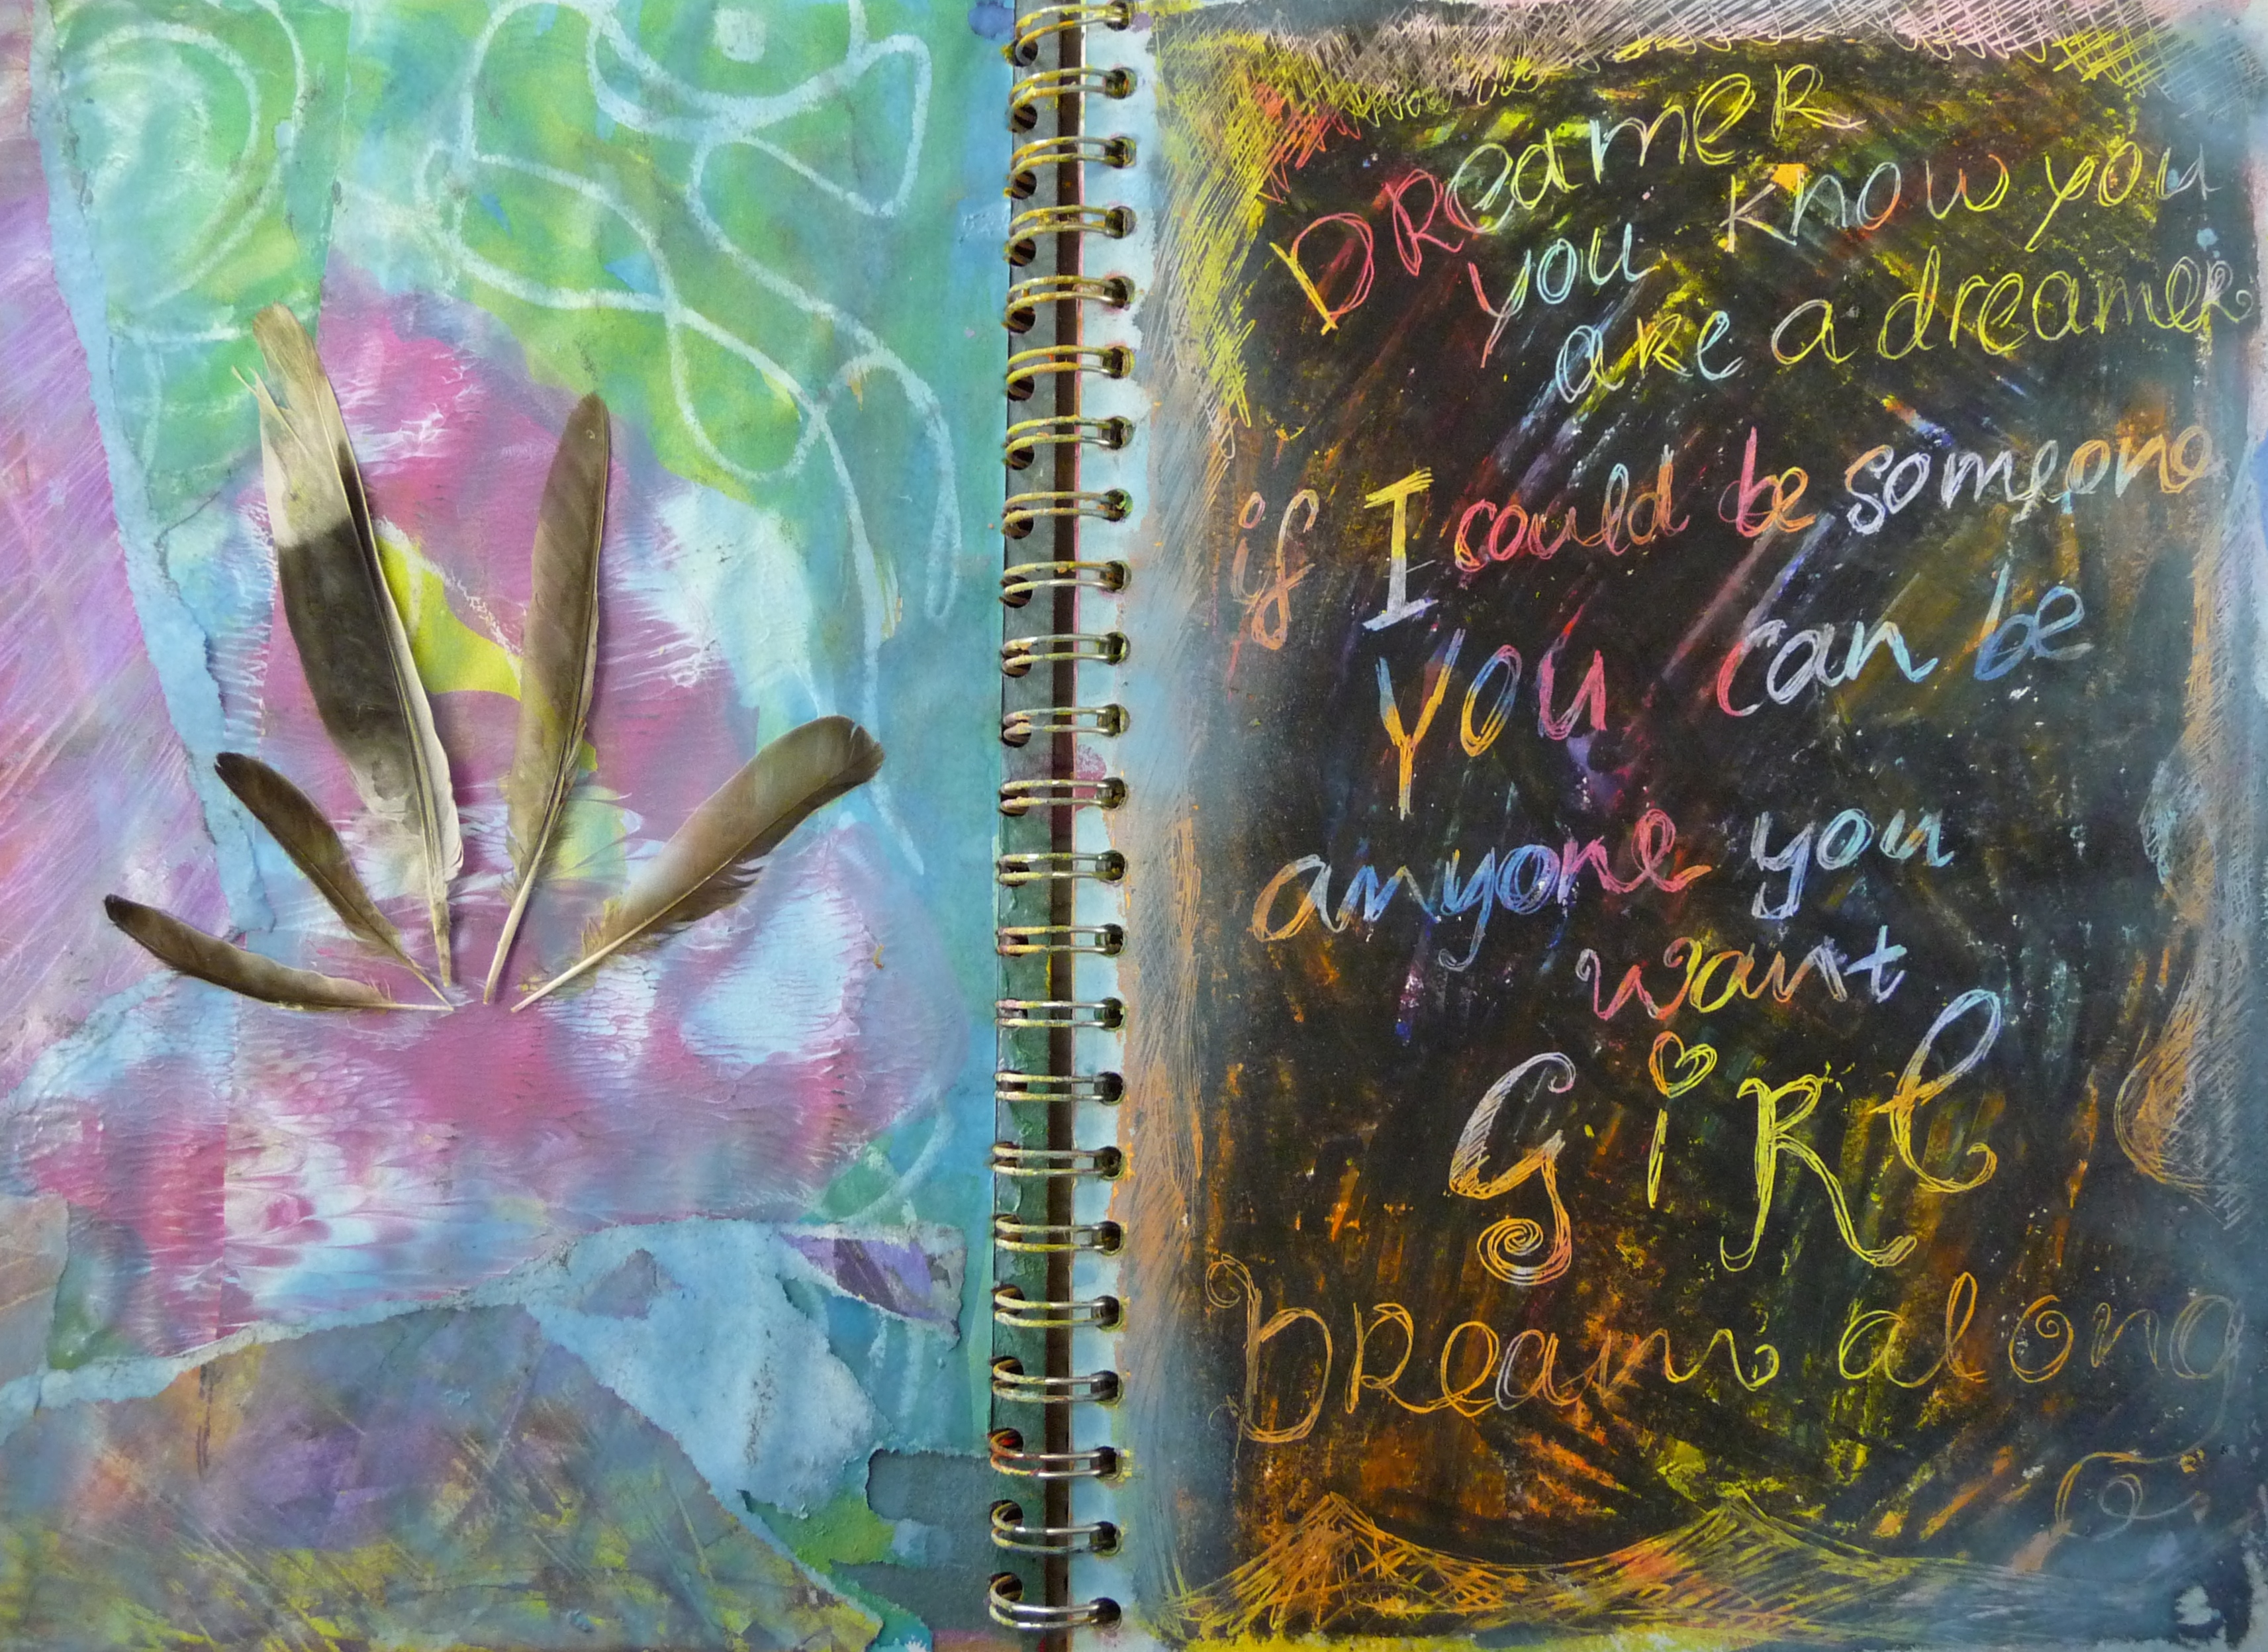 DReameR
you know you
aRe a dreameR
if I could be someone
You can be
anyone you
want
GiRl
DReam along